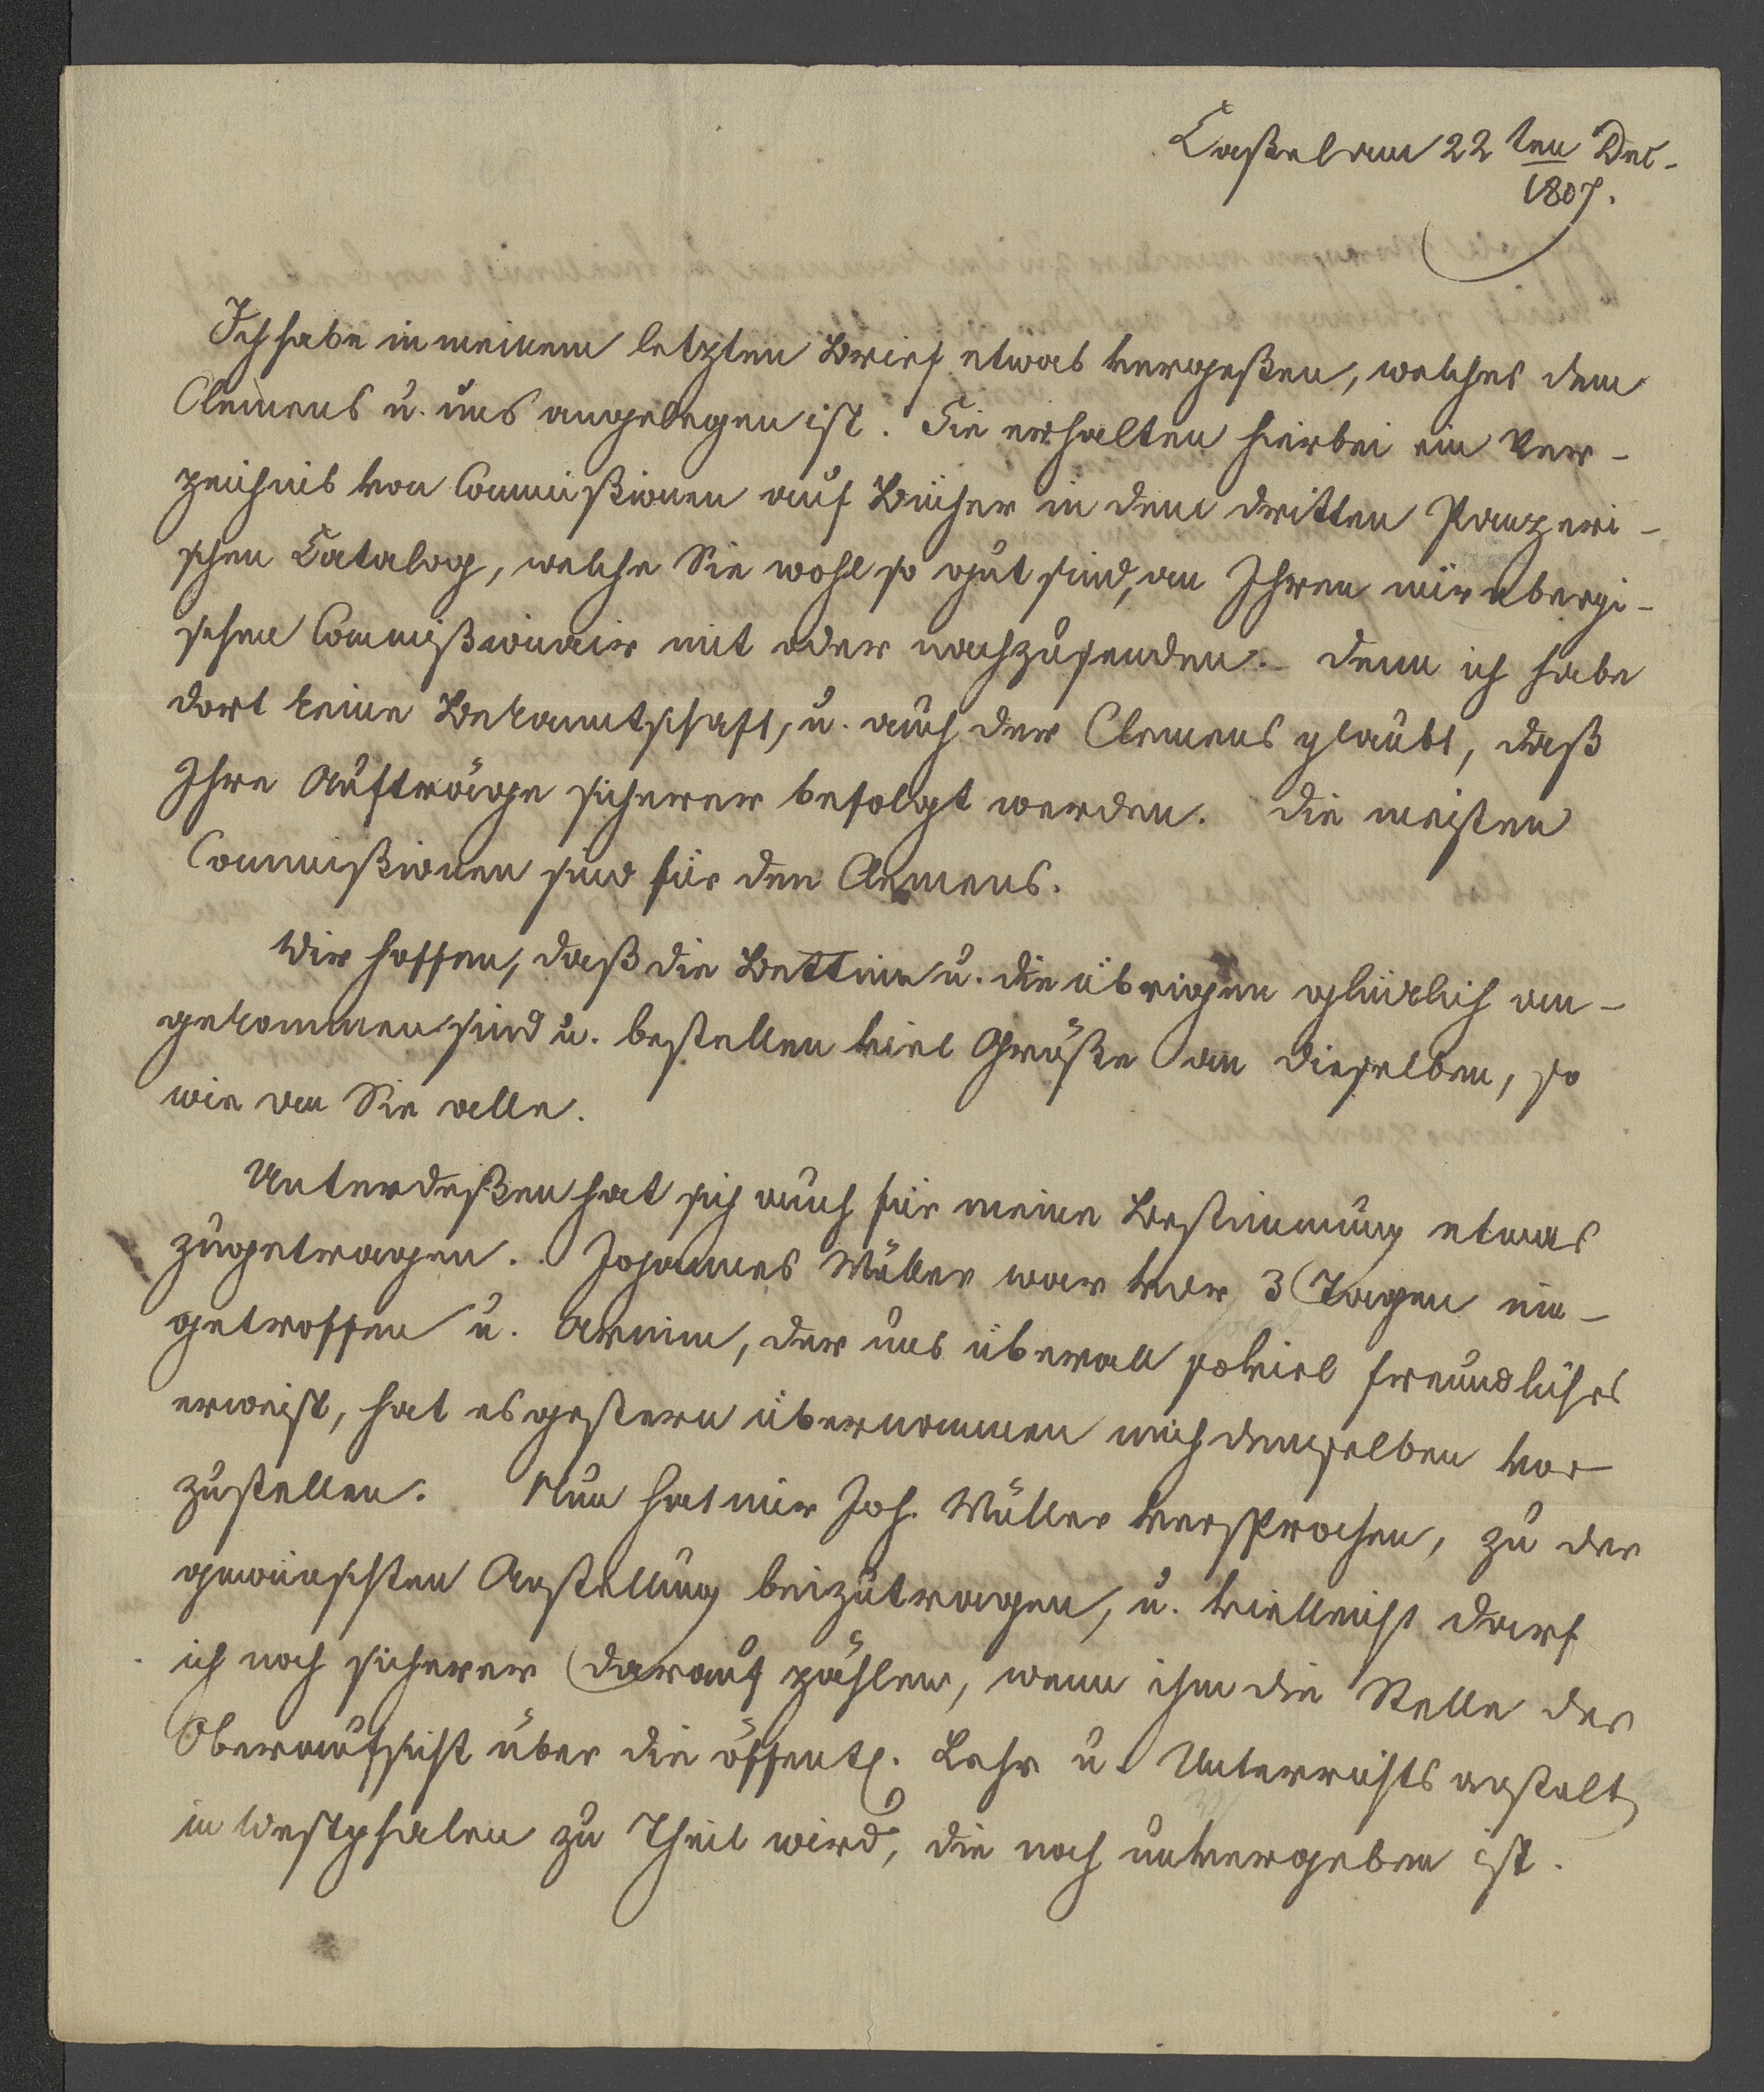 Caßel am 22 ten Dec.
1807.
Ich habe in meinem letzten Brief etwas vergeßen, welches dem
Clemens u. uns angelegen ist. Sie erhalten hierbei ein Ver-
zeichnis von Commißionen auf Bücher in dem dritten Panzeri-
schen Catalog, welche Sie wohl so gut sind, an Ihren nürnbergi-
schen Commißionair mit oder nachzusenden. denn ich habe
dort keine Bekanntschaft, u. auch der Clemens glaubt, daß
Ihre Aufträge sicherer befolgt werden. die meisten
Commißionen sind für den Clemens.
Wir hoffen, daß die Bettine u. die übrigen glücklich an-
gekommen sind u. bestellen viel Grüße an dieselben, so
wie an Sie alle.
Unterdeßen hat sich auch für meine Bestimmung etwas
zugetragen. Johannes Müller war vor 3 Tagen ein-
getroffen u. Arnim, der uns überall soviel freundliches
erweist, hat es gestern übernommen mich demselben vor
zustellen. Nun hat mir Joh. Müller versprochen, zu der
gewünschten Anstellung beizutragen, u. vielleicht darf
ich noch sicherer darauf zählen, wenn ihm die Stelle der
Oberaufsicht über die öffentl. Lehr u. Unterrichts anstalt
in Westphalen zu Theil wird, die noch unvergeben ist.